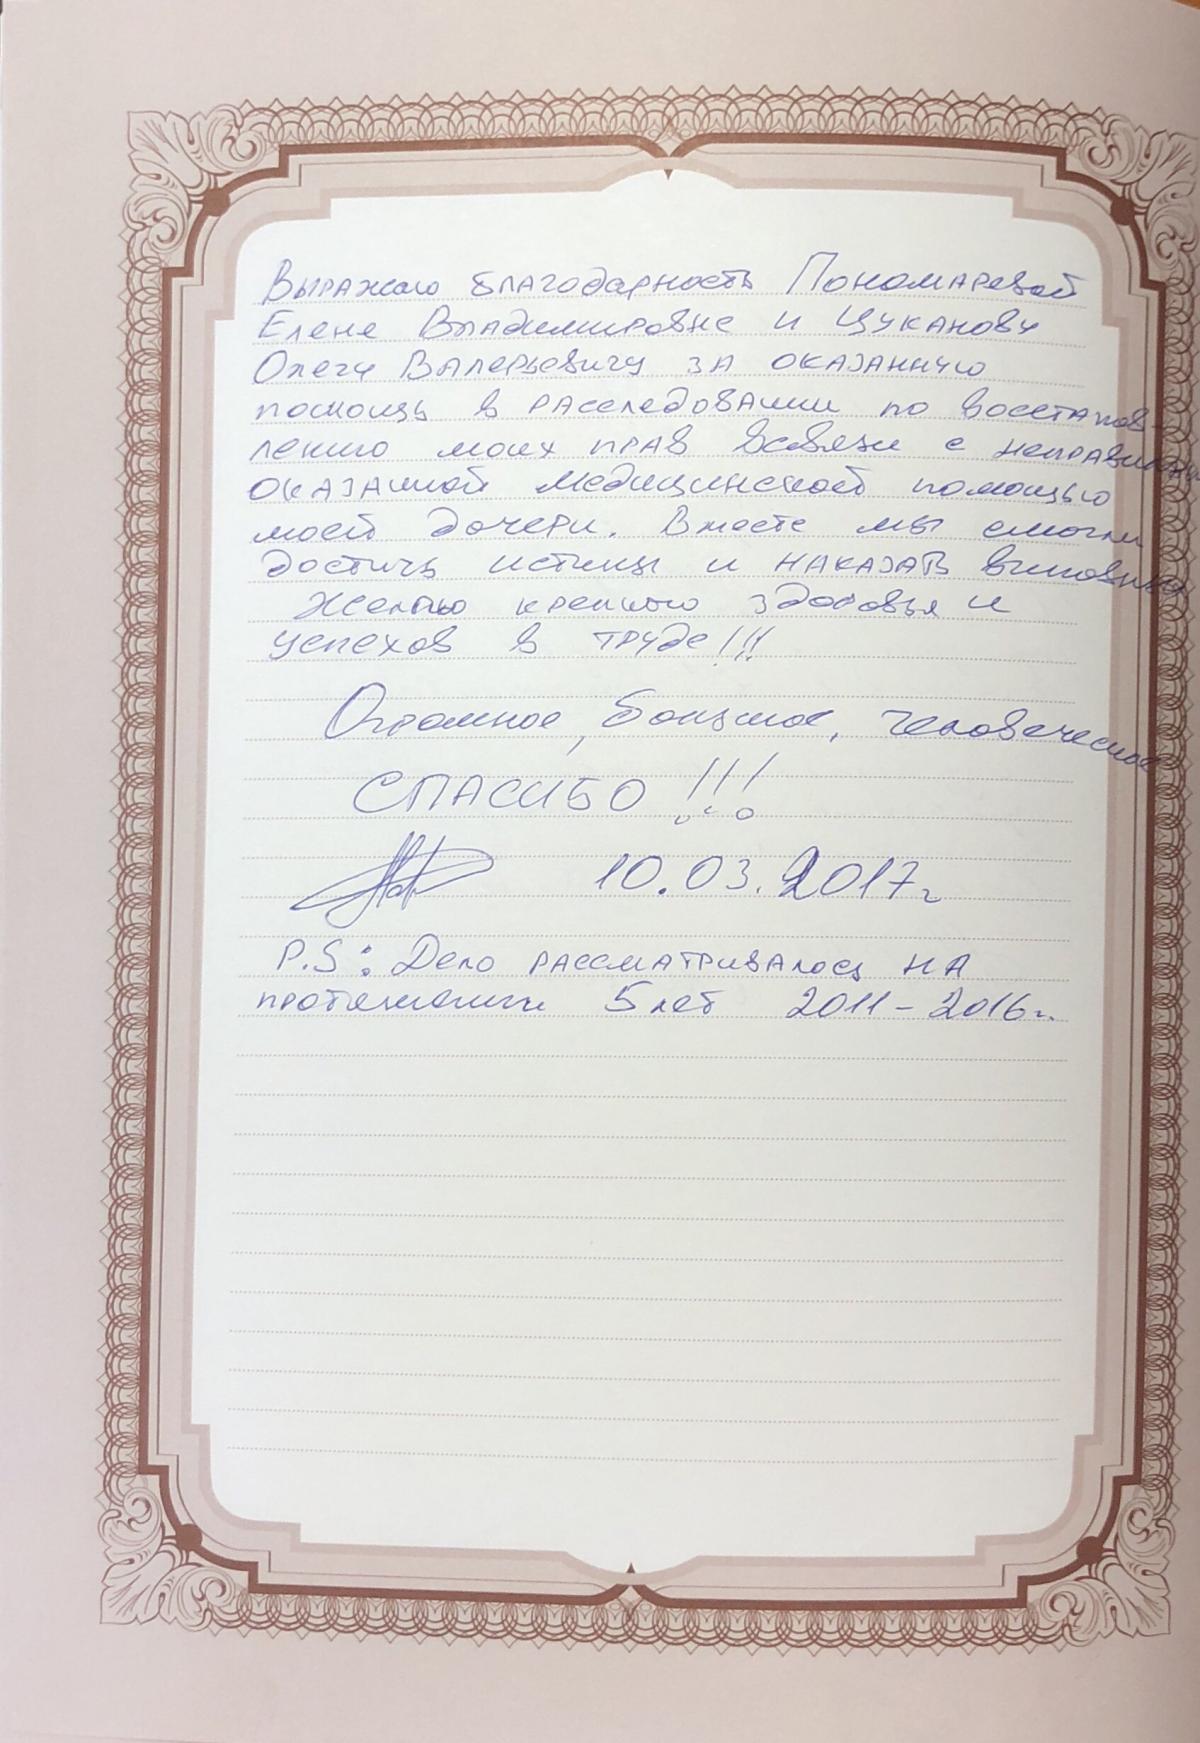 Выражаю благодарность Пономаревой
Елене Владимировне и Цуканову
Олегу Валерьевичу за оказанную
помощь в расследовании по восстанов-
лению моих прав всвязи с неправильно
оказанной медицинской помощью
моей дочери. Вместе мы смогли
достичь истины и наказать виновных
Желаю крепкого здоровья и
успехов в труде!!!
Огромное, большое, человеческое
СПАСИБО !!!
10.03.2017г
P.S: Дело рассматривалось на
протяжении 5 лет 2011-2016г.